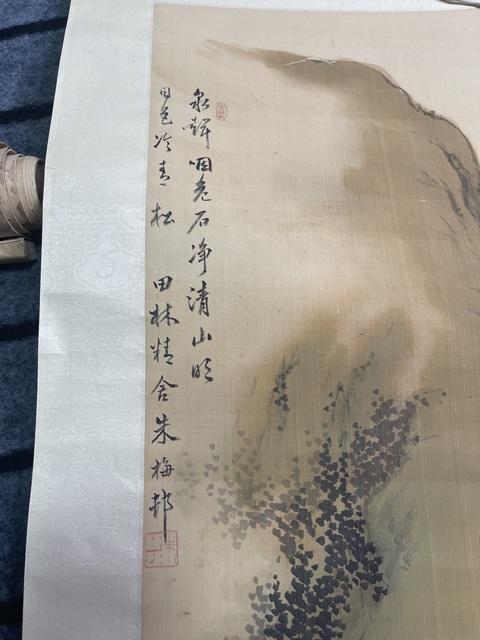 泉聲咽危石净清山明
日色冷青松 田林精舍朱梅邨